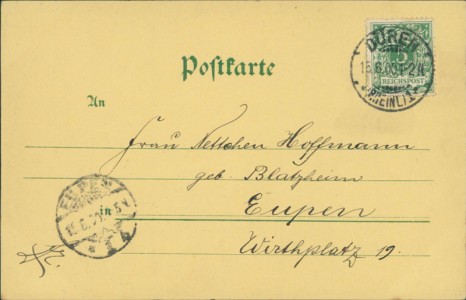 DÜREN
5
REICHSPOST
(RHEINL.)
Postkarte
An
Frau Nettchen Hoffmann
geb. Blatzheim
EUPEN
in Eupen
Wirthplatz 19.